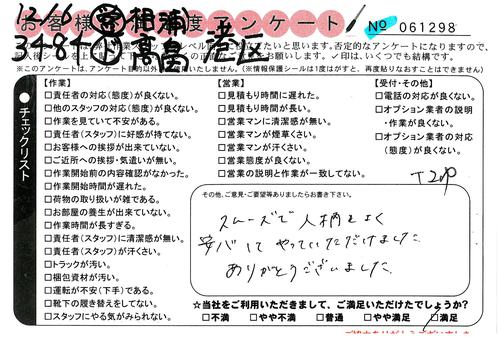 お客様満足度アンケート
12/16 相浦
3486 高畠 港区
№ 061298
チェックリスト
【作業】
□責任者の対応(態度)が良くない。
□他のスタッフの対応(態度)が良くない。
□作業を見ていて不安がある。
□責任者(スタッフ)に好感が持てない。
□お客様への挨拶が出来ていない。
□ご近所への挨拶・気遣いが無い。
□作業開始前の内容確認がなかった。
□作業開始時間が遅れた。
□荷物の取り扱いが雑である。
□お部屋の養生が出来ていない。
□作業時間が長すぎる。
□責任者(スタッフ)に清潔感が無い。
□責任者(スタッフ)が汗くさい。
□トラックが汚い。
□梱包資材が汚い。
□運転が不安(下手)である。
□靴下の履き替えをしてない。
□スタッフにやる気がみられない。
【営業】
□見積もり時間に遅れた。
□見積もり時間が長い。
□営業マンに清潔感が無い。
□営業マンが煙草くさい。
□営業マンが汗くさい。
□営業態度が良くない。
□営業の説明と作業が一致してない。
【受付・その他】
□電話の対応が良くない。
□オプション業者の説明
・作業が良くない。
□オプション業者の対応
(態度)が良くない。
その他、ご意見・ご要望等ありましたらお書き下さい。
スムーズで人柄もよく
安心してやっていただけました
ありがとうございました
☆当社をご利用いただきまして、ご満足いただけたでしょうか?
□不満 □やや不満 □普通 □やや満足 □満足